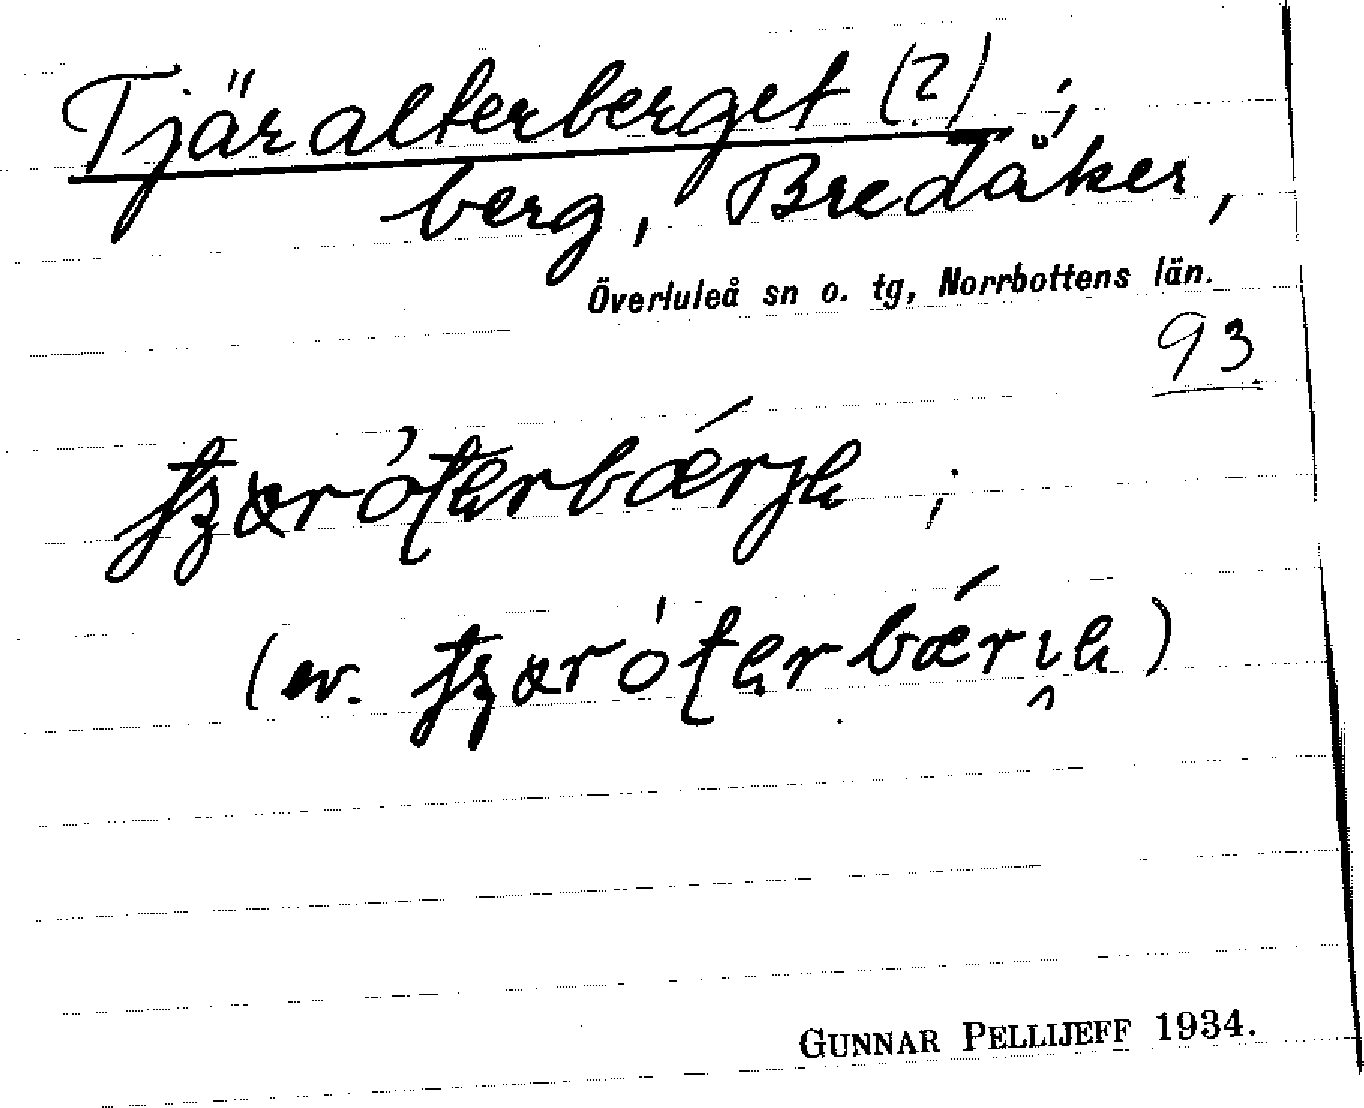 Tjäralterberget (?) ;
berg, Bredåker,
Överluleå sn o. tg, Norrbottens län.
93
(ev.
GUNNAR PELLIJEFF 1934.